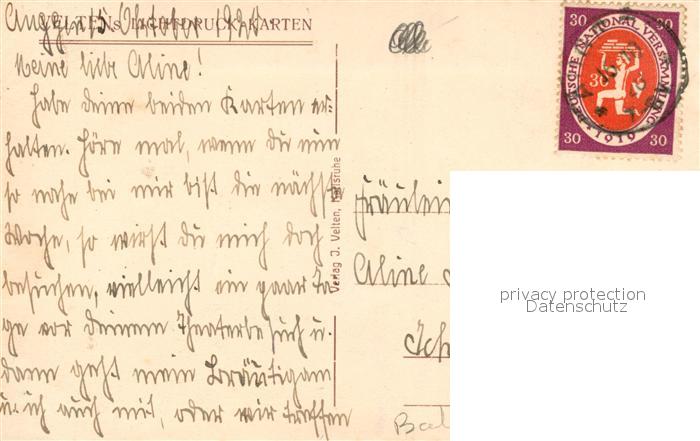 VELTENs LICHTDRUCK-KARTEN
Auggen, 15. Oktober 1920.
Meine liebe Aline!
Habe deine beiden Karten er-
halten. Höre mal, wenn du nun
so nahe bei mir bist die nächste
Woche, so wirst du mich doch
besuchen, vielleicht ein paar Ta-
ge vor deinem Theaterbesuch u.
dann geht mein Bräutigam
u. ich auch mit, oder wir treffen
Verlag J. Velten, Karlsruhe
30 30
DEUTSCHE NATIONALVERSAMMLUNG
30
30 1919 30
Fräulein
Aline
privacy protection
Datenschutz